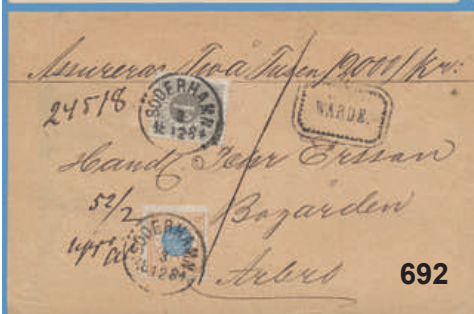 Assureras Två Tusen /2000/ Kr:
24518
SÖDERHAMN
3
12 84
WARDE.
Handl. Pehr Ersson
52/2
Bogården
SÖDERHAMN
3
12 84
Arbrå
692